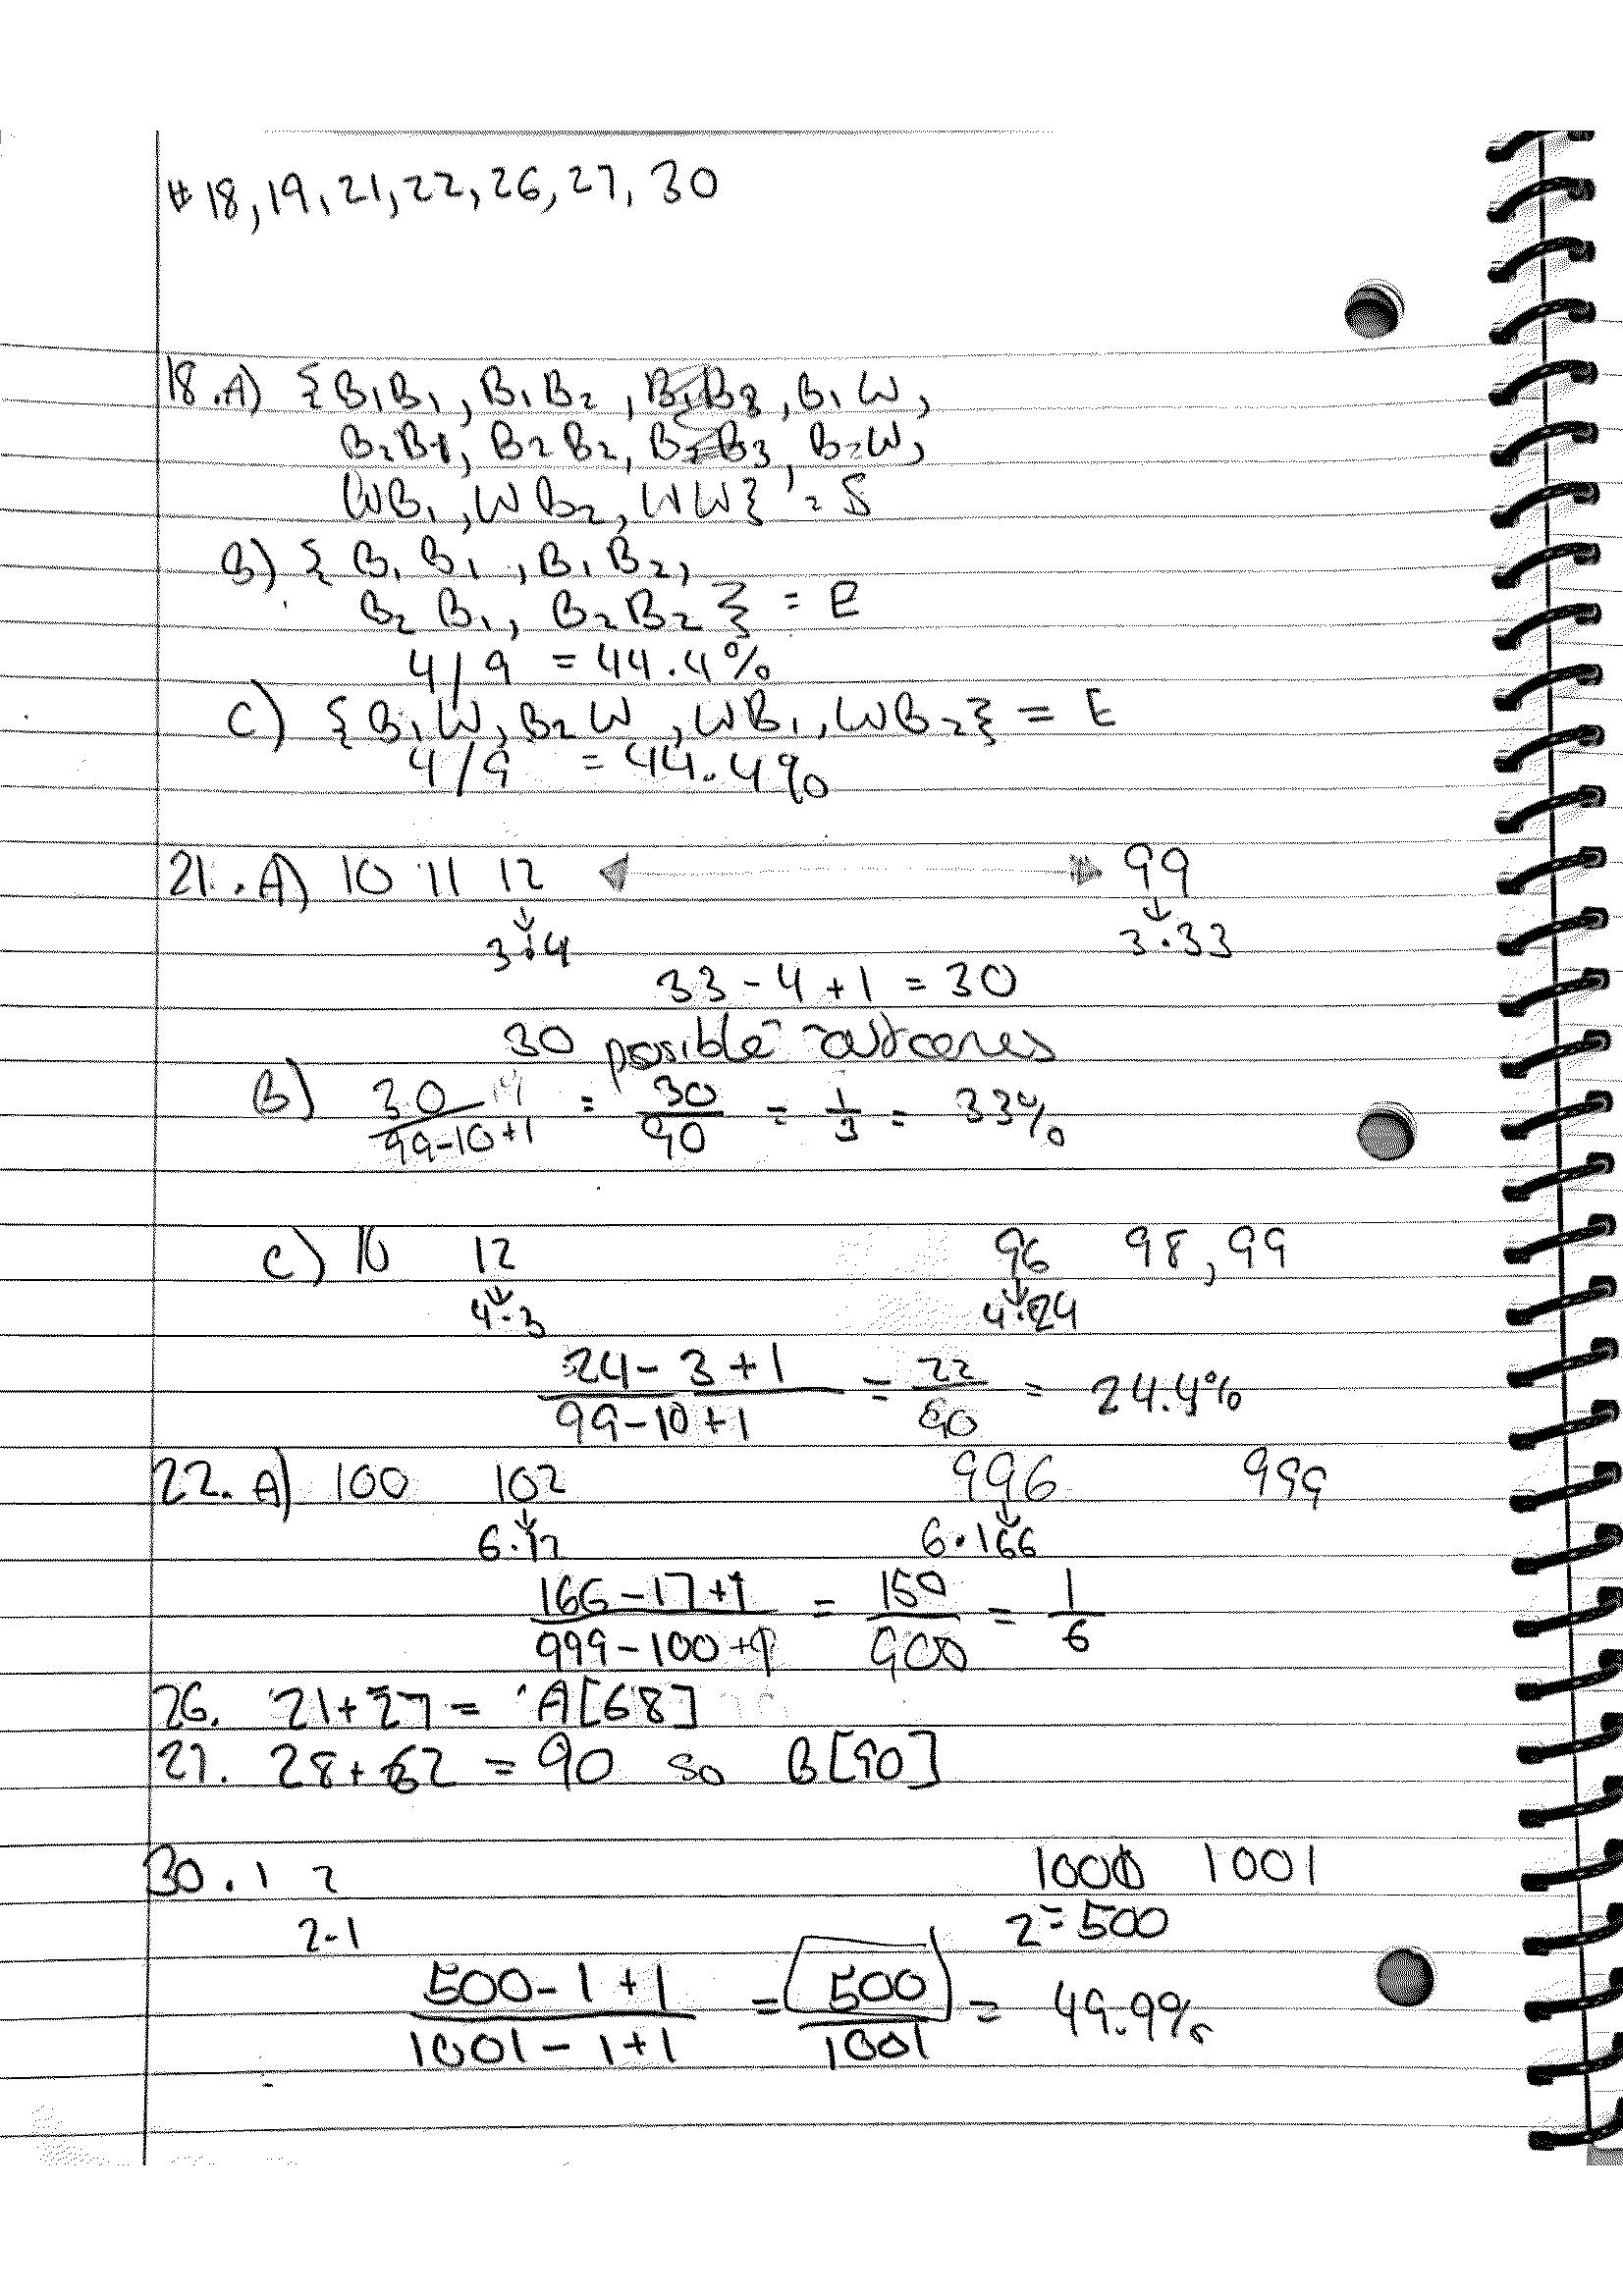 # 18, 19, 21, 22, 26, 27, 30
18. A) { B₁B₁, B₁B₂, B₁W,
B₂B₁, B₂B₂, B₂W,
WB₁, WB₂, WW} = S
B) { B₁B₁, B₁B₂,
B₂B₁, B₂B₂ } = E
4/9 = 44.4%
C) { B₁W, B₂W, WB₁, WB₂} = E
4/9 = 44.4%
21. A) 10 11 12 ◄ ► 99
↓ ↓
3·4 3·33
33 - 4 + 1 = 30
30 posible outcomes
B) 30/(99-10+1) = 30/90 = 1/3 = 33%
C) 10 12 96 98, 99
↓ ↓
4·3 4·24
(24 - 3 + 1)/(99 - 10 + 1) = 22/90 = 24.4%
22. A) 100 102 996 999
↓ ↓
6·17 6·166
(166 - 17 + 1)/(999 - 100 + 1) = 150/900 = 1/6
26. 21 + 27 = A[68]
27. 28 + 62 = 90 so B[90]
30. 1 2 1000 1001
2·1 2 = 500
(500 - 1 + 1)/(1001 - 1 + 1) = 500/1001 = 49.9%